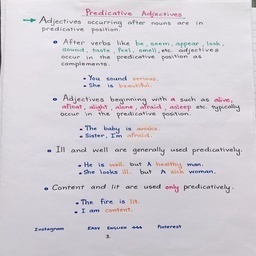 Predicative Adjectives
→ Adjectives occurring after nouns are in
predicative position.
• After verbs like be, seem, appear, look,
sound, taste, feel, smell, etc. adjectives
occur in the predicative position as
complements.
• You sound serious.
• She is beautiful.
• Adjectives beginning with a such as alive,
afloat, alight, alone, afraid, asleep etc. typically
occur in the predicative position.
• The baby is awake.
• Sister, I'm afraid.
• Ill and well are generally used predicatively.
• He is well. but A healthy man.
• She looks ill. but A sick woman.
• Content and lit are used only predicatively.
• The fire is lit.
• I am content.
Instagram Easy English 444 Pinterest